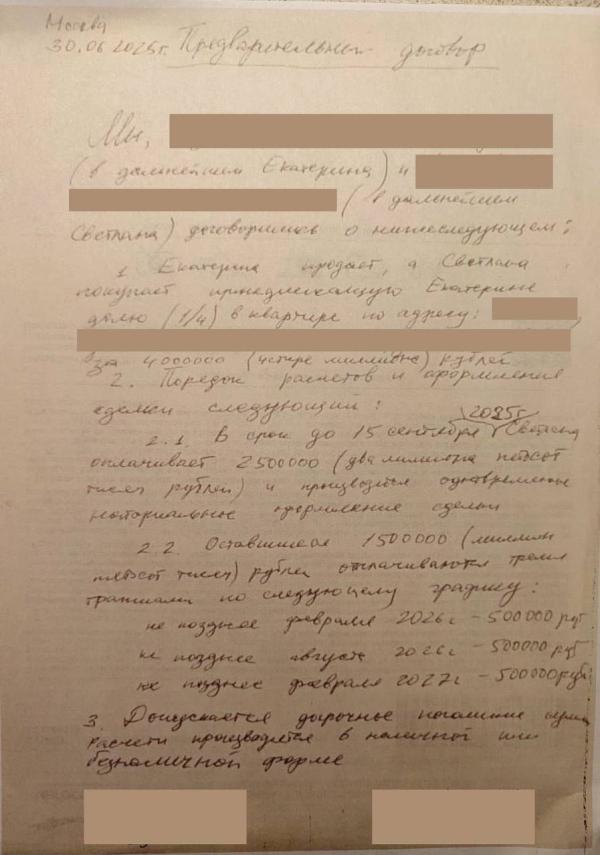 Москва
30.06.2025г. Предварительный договор
Мы,
(в дальнейшем Екатерина) и
(в дальнейшем
Светлана) договорились о нижеследующем:
1 Екатерина продает, а Светлана
покупает принадлежащую Екатерине
долю (1/4) в квартире по адресу:
за 4000000 (четыре миллиона) рублей
2. Порядок расчетов и оформления
сделки следующий:
2025г
2.1. В срок до 15 сентября Светлана
оплачивает 2500000 (два миллиона пятьсот
тысяч рублей) и производится одновременно
нотариальное оформление сделки
2.2. Оставшиеся 1500000 (миллион
пятьсот тысяч) рублей оплачиваются тремя
траншами по следующему графику:
не позднее февраля 2026г - 500000 руб
не позднее августа 2026г - 500000 руб
не позднее февраля 2027г - 500000 руб
3. Допускается досрочное погашение
расчеты производятся в наличной или
безналичной форме